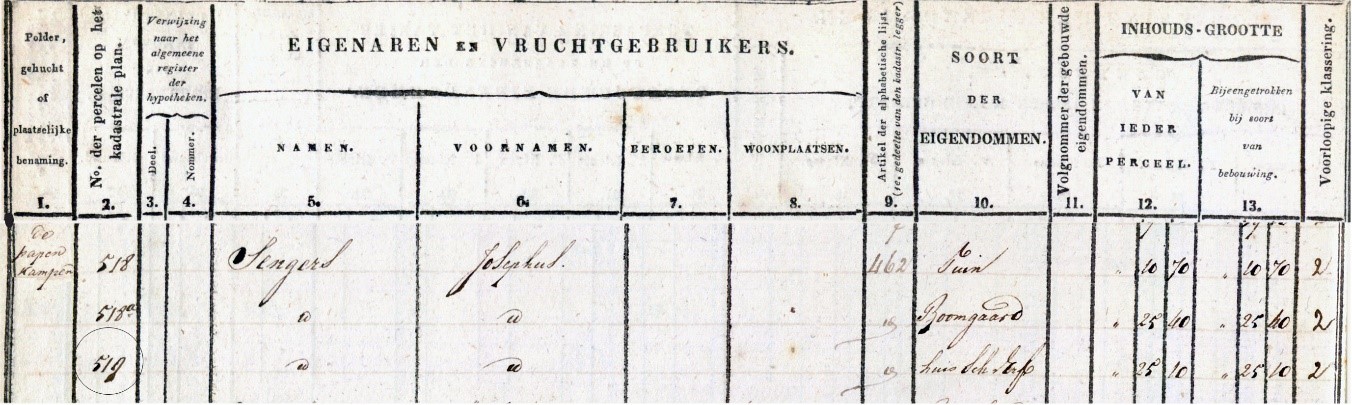 EIGENAREN EN VRUCHTGEBRUIKERS.
INHOUDS-GROOTTE
Polder, gehucht of plaatselijke benaming.
No. der percelen op het kadastrale plan.
Verwijzing naar het algemeene register der hypotheken.
Deel.
Nommer.
NAMEN.
VOORNAMEN.
BEROEPEN.
WOONPLAATSEN.
Artikel der alphabetische lijst
(1e. gedeelte van den kadastr. legger)
SOORT DER EIGENDOMMEN.
Volgnommer der gebouwde eigendommen.
VAN IEDER PERCEEL.
Bijeengetrokken bij soort van bebouwing.
Voorloopige klassering.
1. 2. 3. 4. 5. 6. 7. 8. 9. 10. 11. 12. 13.
de
papen
kampen 518 Sengers Josephus. 462 Tuin " 10 70 " 10 70 2
518a id id id Boomgaard " 25 40 " 25 40 2
519 id id id huis Sch & erf " 25 10 " 25 10 2